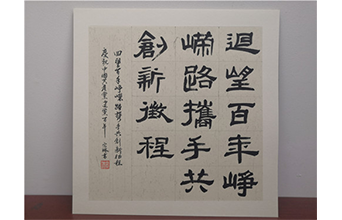 迴望百年崢
嶸路攜手共
創新徵程
回望百年崢嶸路携手共創新征程
慶祝中國共產黨建黨百年